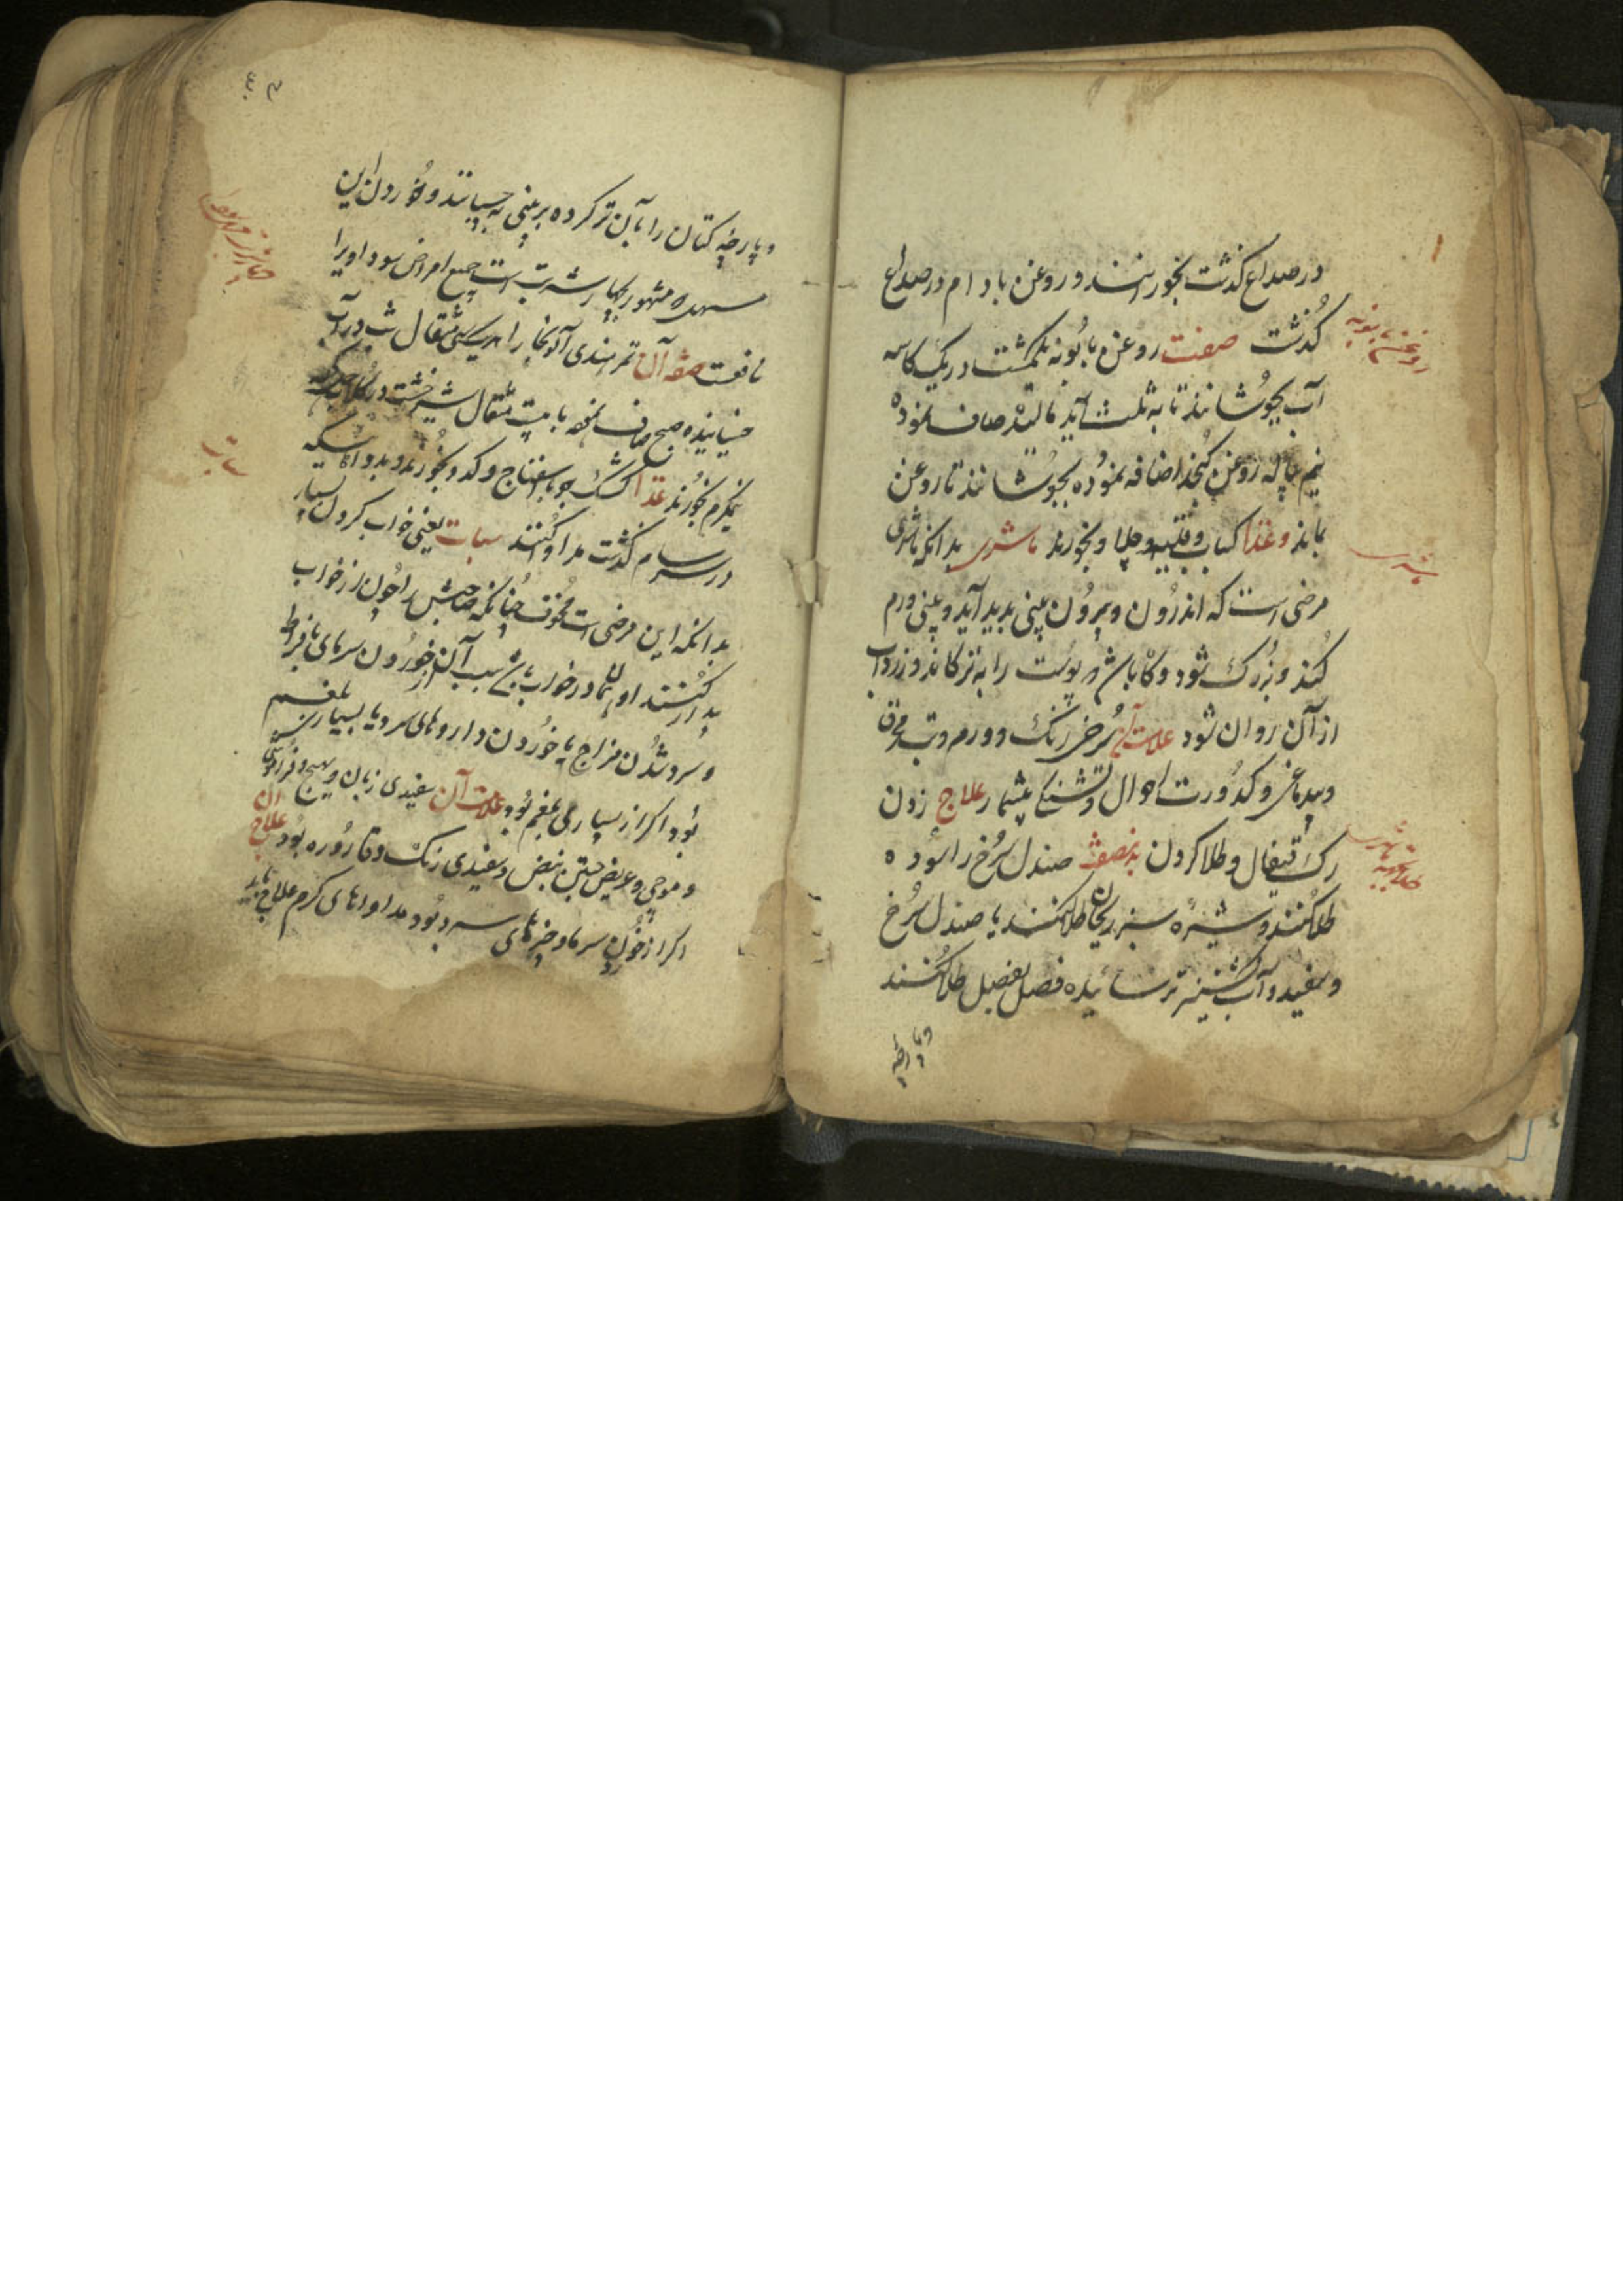 در صداع گذشت بخورانند و روغن بادام در صداع
گذشت صفت روغن بابونه یکمشت در یک کاسه
آب بجوشانند تا به ثلث آید مالند صاف نموده
نیم پیاله روغن کنجد اضافه نموده بجوشانند تا روغن
بماند و غذا کباب و قلیه و چلپا و بخورند ماشری بدانکه ماشری
مرضی است که اندرون و بیرون بینی پدید آید و بینی ورم
کند و بزرک شود و کاه باشد پوست را به ترکاند و زرداب
از آن روان شود علامت آن سرخی رنک و ورم و تب محرق
و بیدماغی و کدورت احوال و تشنکی بیشمار علاج زدن
رک قیفال و طلا کردن صندل سرخ را سوده
طلا کنند و شیره سبز ریحان طلا کنند یا صندل سرخ
و سفید و آب کشنیز تر سائیده فصل بفصل طلا کنند
و پارچه
روغن بابونه
ماشری
علاج ماشری
و پارچه کتان را بآن تر کرده بر بینی به چسپانند و خوردن این
مسهل مشهور بچهار شربت است جمیع امراض سوداویرا
نافعست صفه آن تمر هندی آلو بخارا هر یک سی مثقال شب در آب
خیسانیده صبح صاف نموده با بیست مثقال شیرخشت در
نیمکرم بخورند غذا کشک جو با اسفناج و کدو بخورند و بدواهائیکه
در سرسام گذشت مداوا کنند سبات یعنی خواب کردن بسیار
بدانکه این مرضی است مخوف چنانکه صاحبش را چون از خواب
بیدار کنند او همان در خواب باشد سبب آن از خوردن سرمای بافراط
و سرد شدن مزاج یا خوردن داروهای سرد یا بسیاری بلغم
بود اکر از بسیاری بلغم بود علامت آن سفیدی زبان و تهیج و فراموشی
و موجی و عریض جستن نبض و سفیدی رنک و قاروره بود علاج آن
اکر از خوردن سرما و چیزهای سرد بود مداواهای کرم علاج نماید
سبات